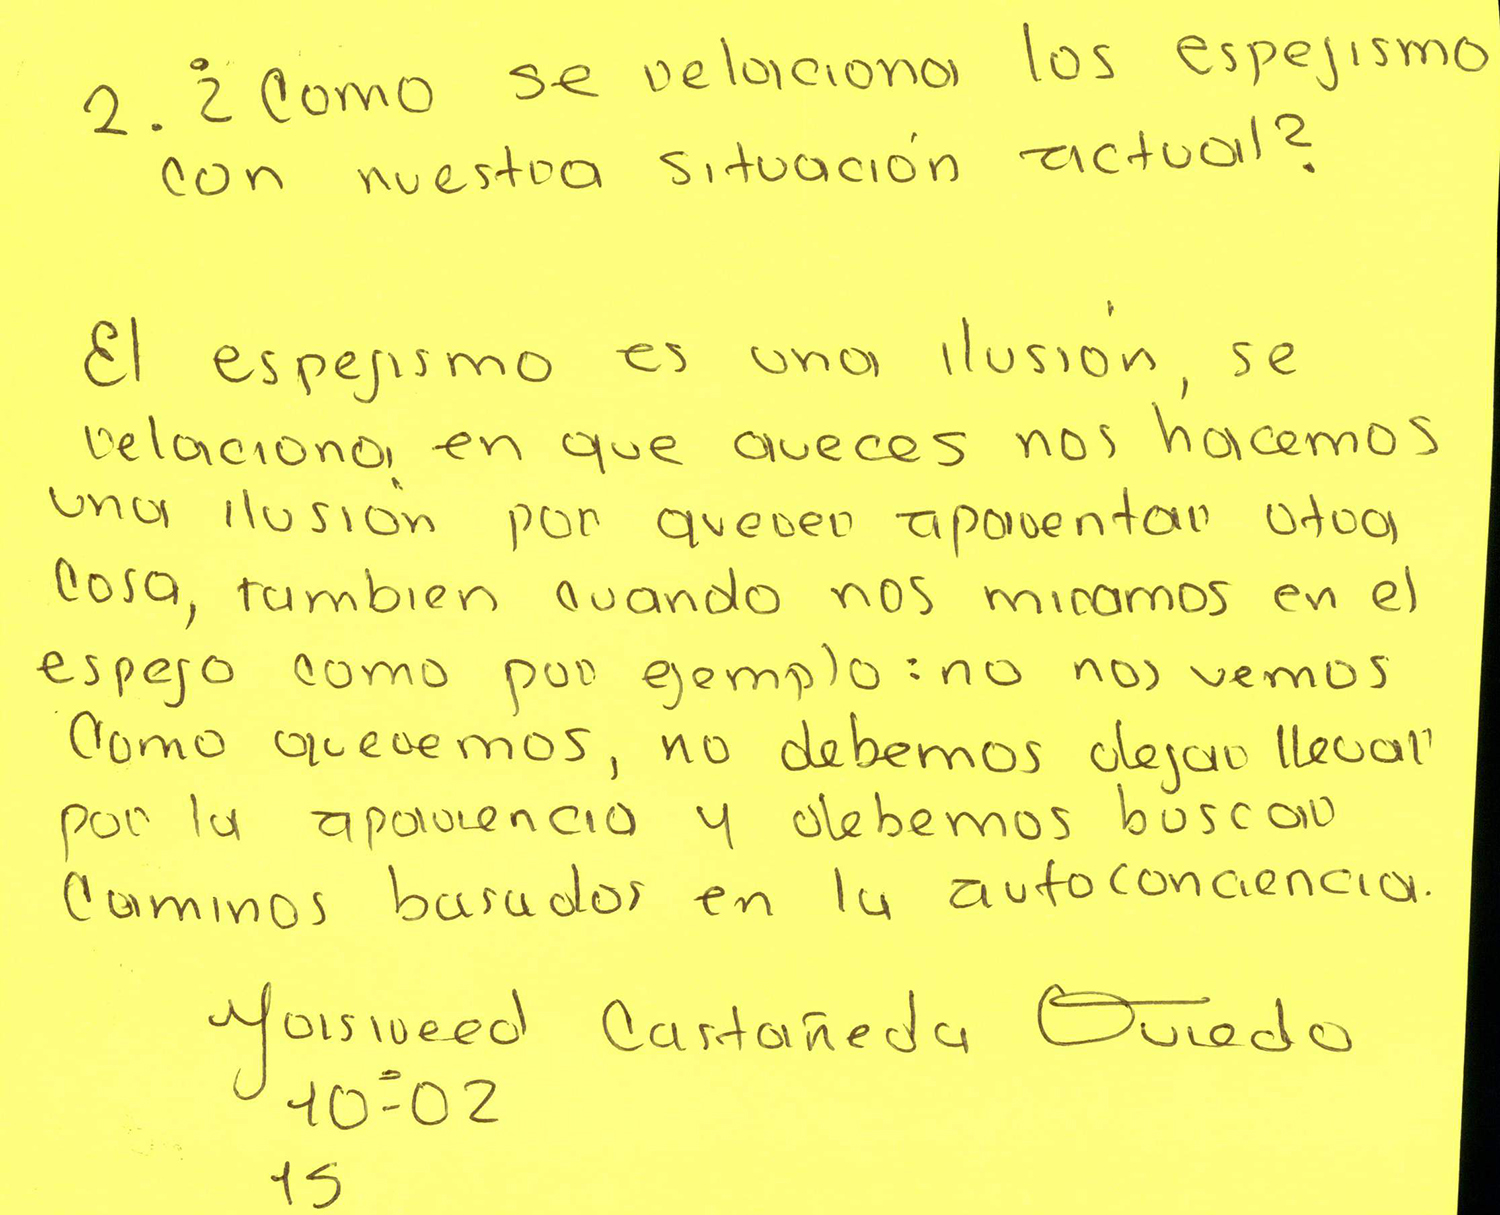 2. ¿Como se relaciona los espejismo
con nuestra situación actual?
El espejismo es una ilusión, se
relaciona en que aveces nos hacemos
una ilusión por querer aparentar otra
cosa, tambien cuando nos miramos en el
espejo como por ejemplo: no nos vemos
como queremos, no debemos dejar llevar
por la apariencia y debemos buscar
caminos basados en la autoconciencia.
Castañeda Oviedo
10º-02
15